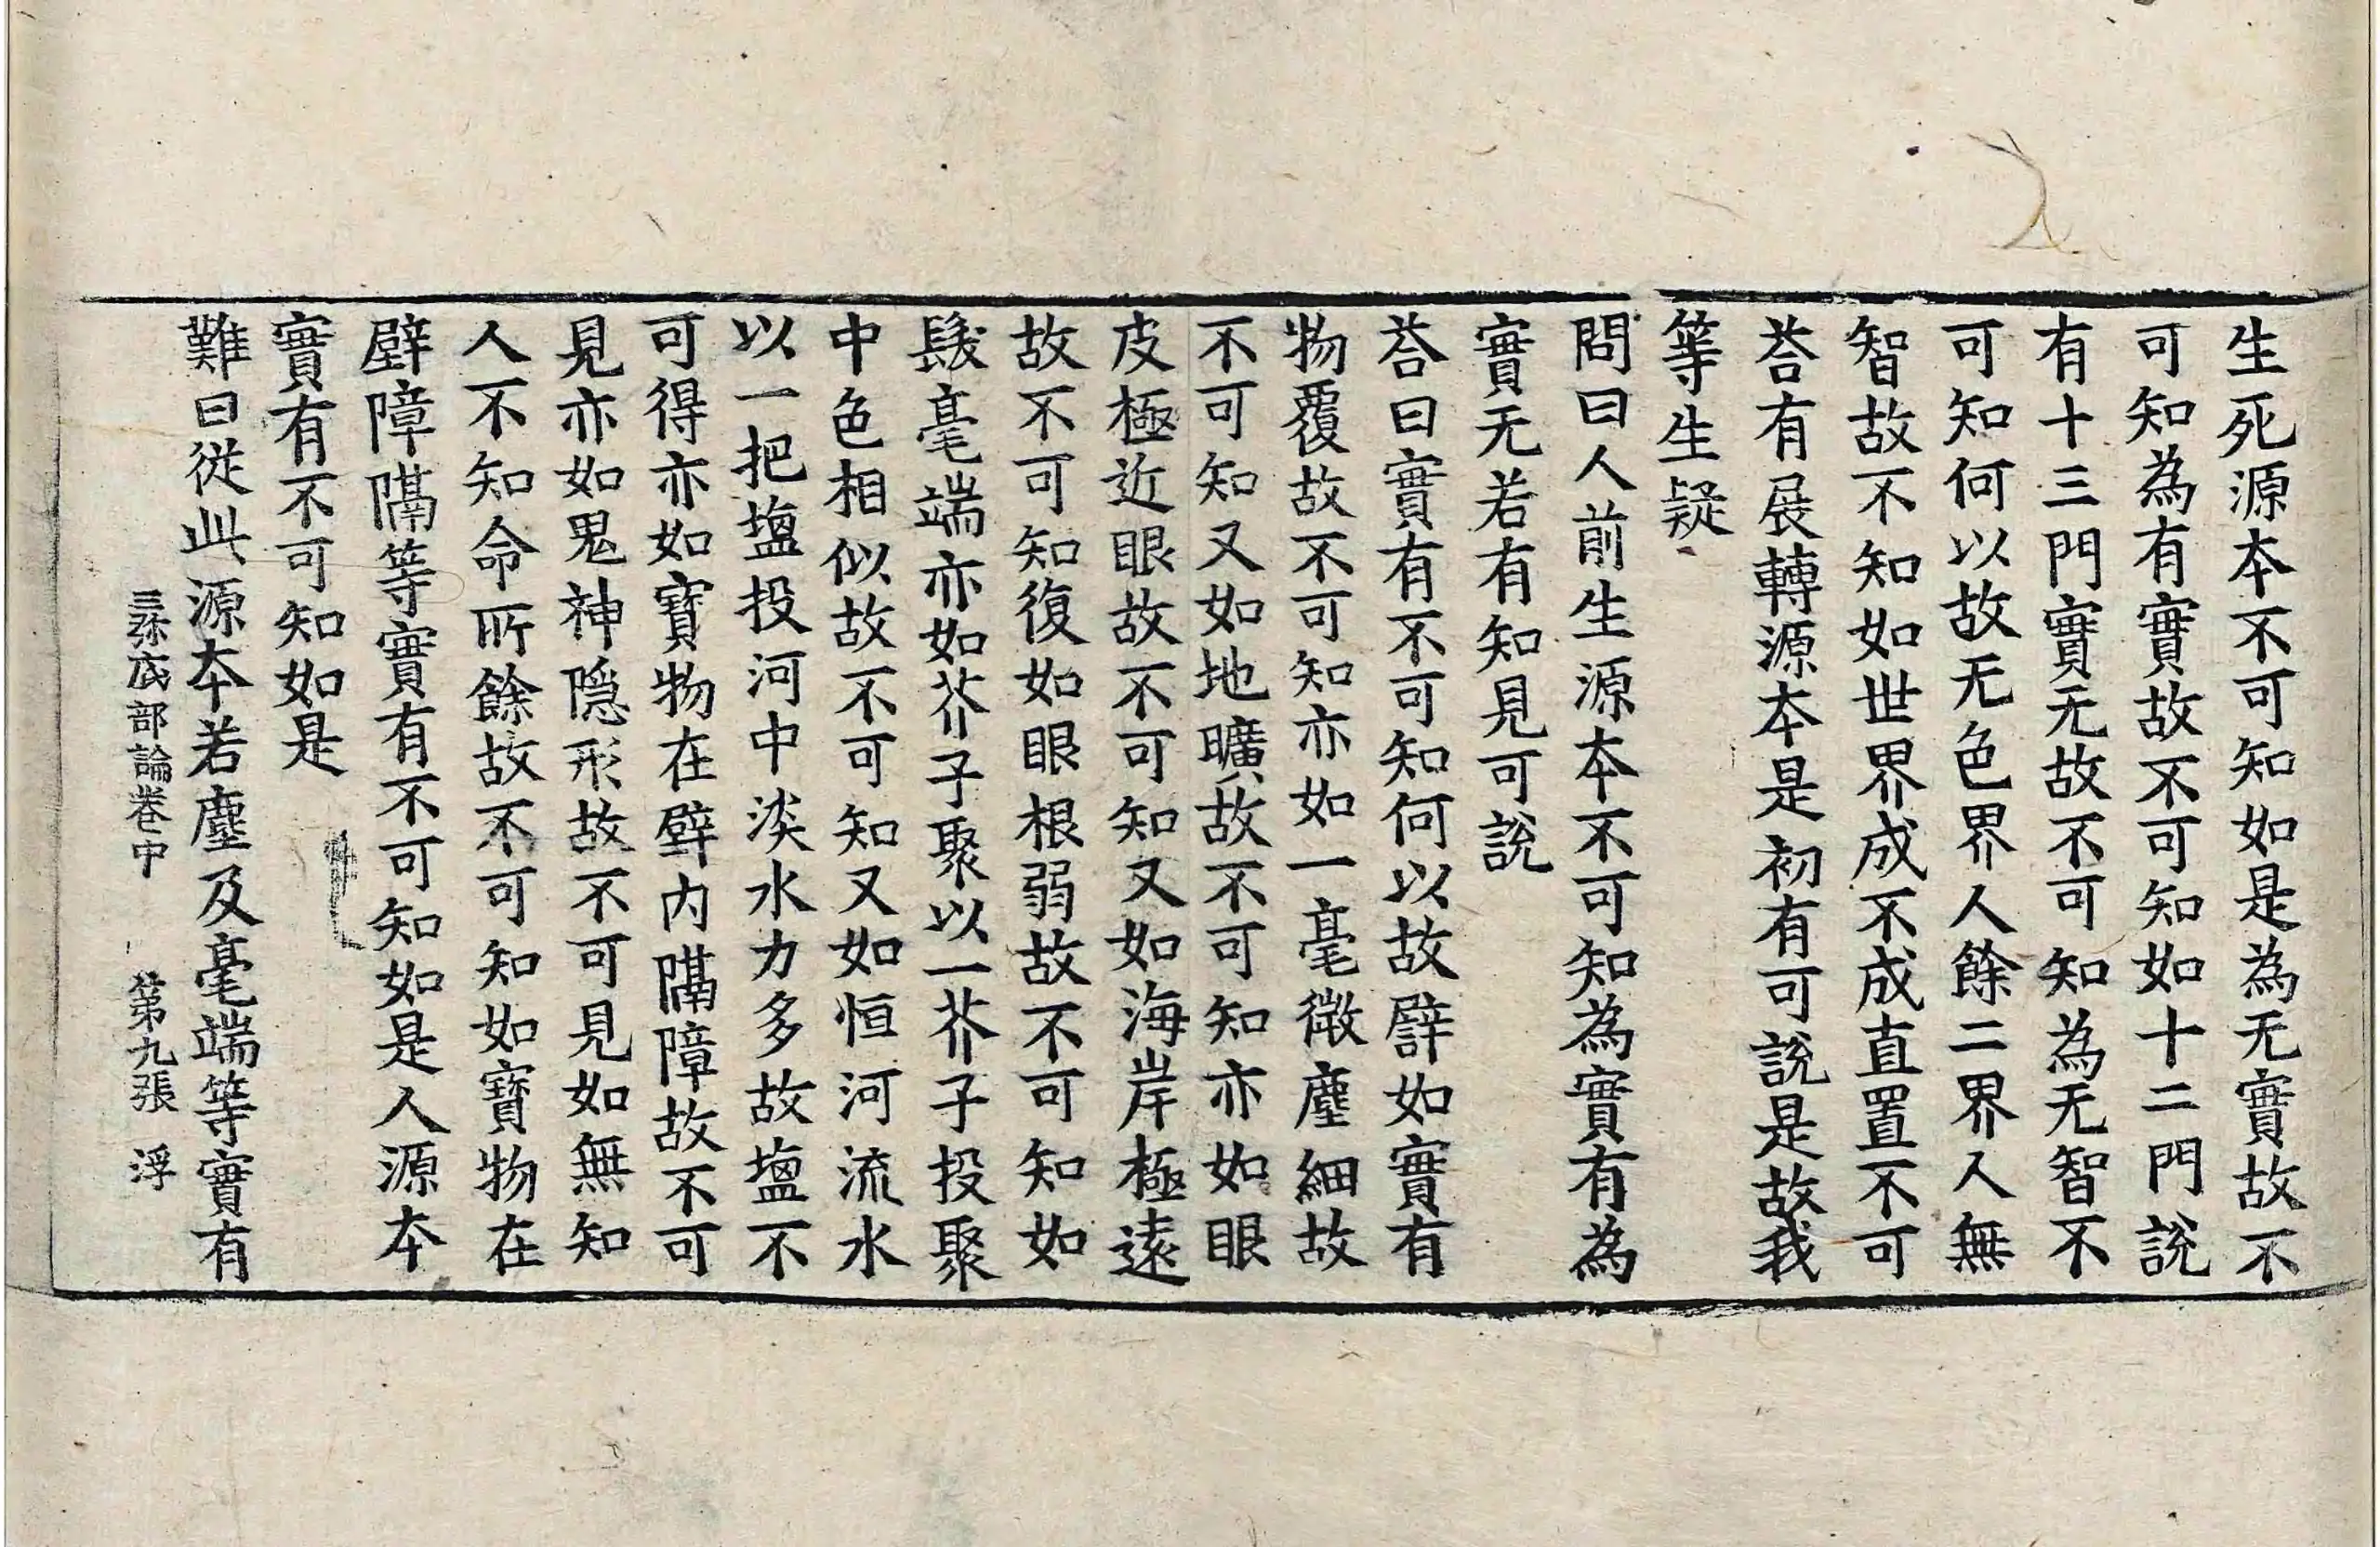 生死源本不可知如是為无實故不
可知為有實故不可知如十二門說
有十三門實无故不可知為无智不
可知何以故无色界人餘二界人無
智故不知如世界成不成直置不可
荅有展轉源本是初有可說是故我
等生疑
問曰人前生源本不可知為實有為
實无若有知見可說
荅曰實有不可知何以故譬如實有
物覆故不可知亦如一毫微塵細故
不可知又如地曠故不可知亦如眼
皮極近眼故不可知又如海岸極遠
故不可知復如眼根弱故不可知如
髮毫端亦如芥子聚以一芥子投聚
中色相似故不可知又如恒河流水
以一把塩投河中淡水力多故塩不
可得亦如寶物在壁內隔障故不可
見亦如鬼神隱形故不可見如無知
人不知命所餘故不可知如寶物在
壁障隔等實有不可知如是人源本
實有不可知如是
難曰從此源本若塵及毫端等實有
三弥底部論卷中 第九張 浮